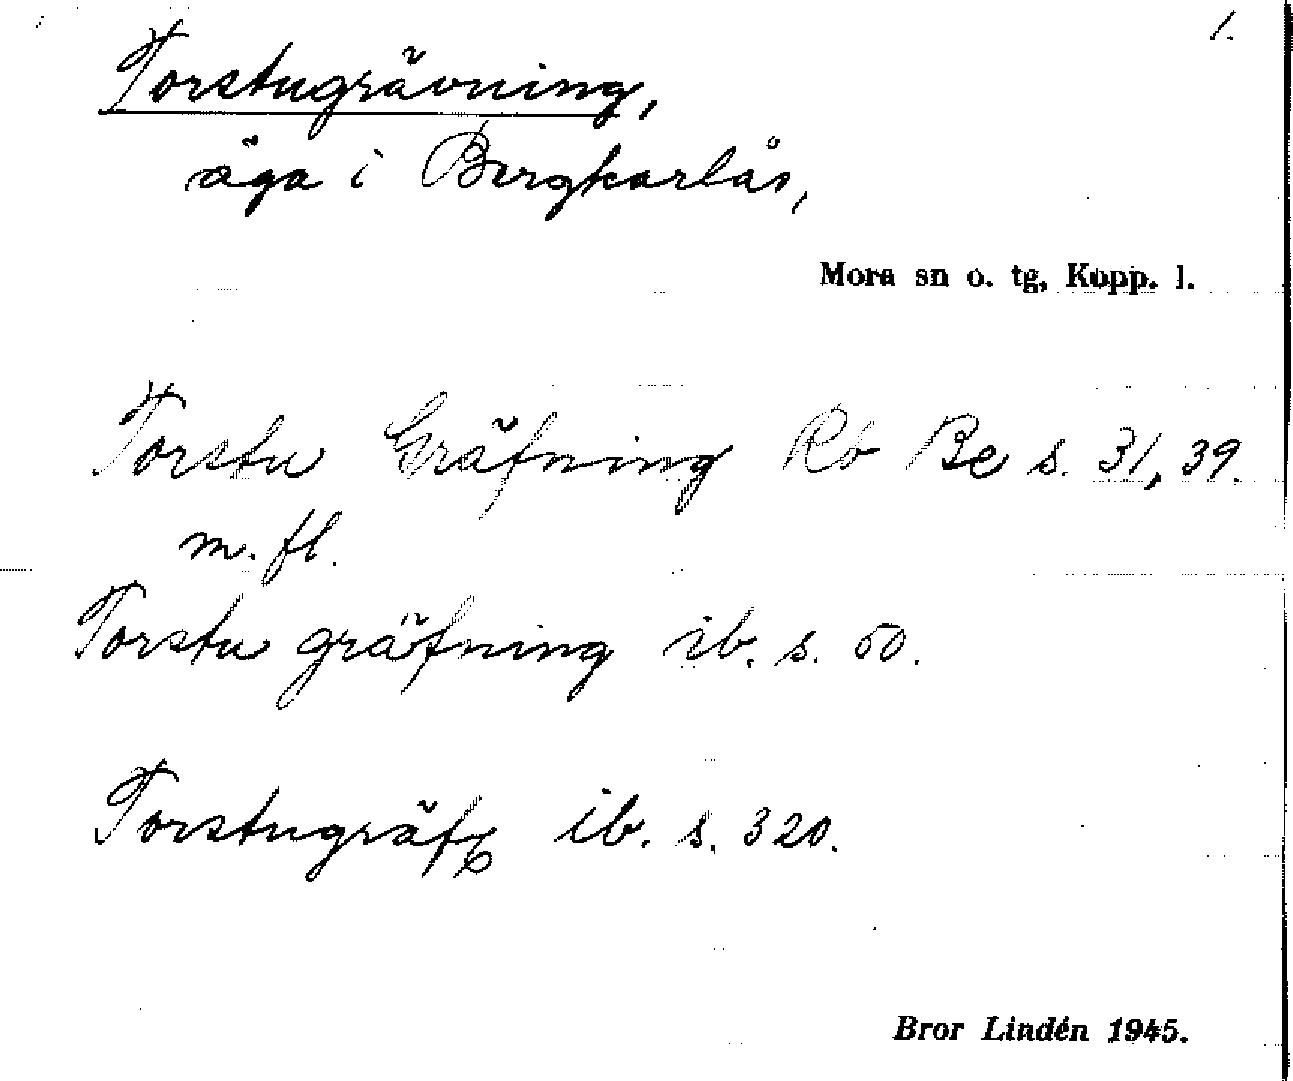 1.
Torstugrävning,
äga i Bergkarlås,
Mora sn o. tg, Kopp. l.
Torstu Gräfning Rb Be s. 31, 39.
m. fl.
Torstu gräfning ib. s. 50.
Torstugräf ib. s. 320.
Bror Lindén 1945.